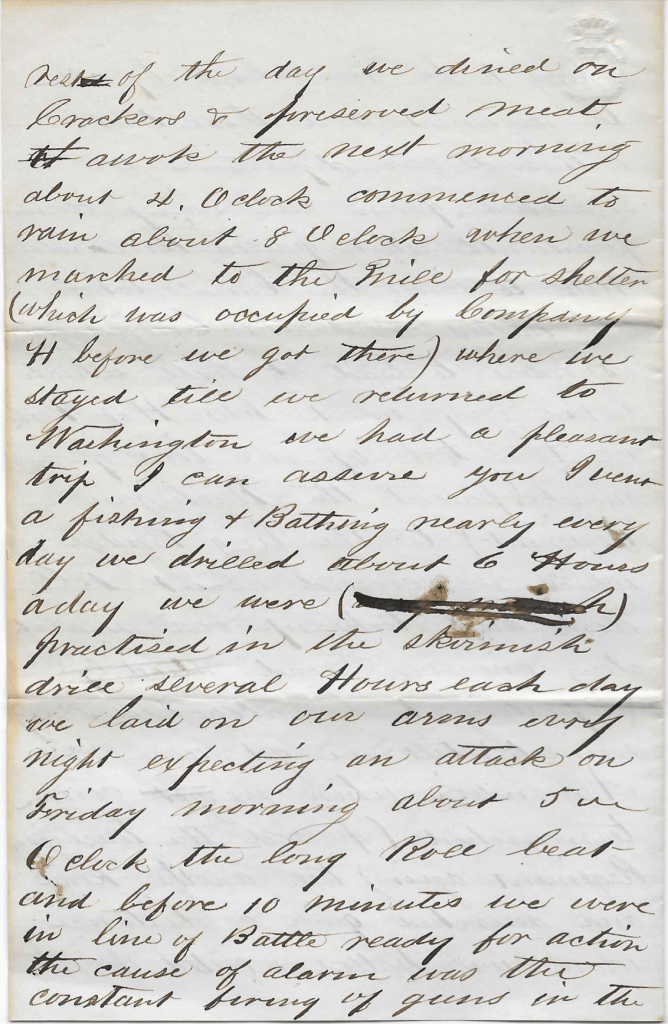 rest of the day we dined on
Crackers & preserved meat
awok the next morning
about 4. Oclock commenced to
rain about 8 Oclock when we
marched to the Mill for shelter
(which was occupied by Company
H before we got there) where we
stayed till we returned to
Washington we had a pleasant
trip I can assure you I went
a fishing & Bathing nearly every
day we drilled about 6 Hours
a day we were (
)
practised in the skirmish
drill several Hours each day
we laid on our arms every
night expecting an attack on
Friday morning about 5
Oclock the long Roll beat
and before 10 minutes we were
in line of Battle ready for action
the cause of alarm was the
constant firing of guns in the